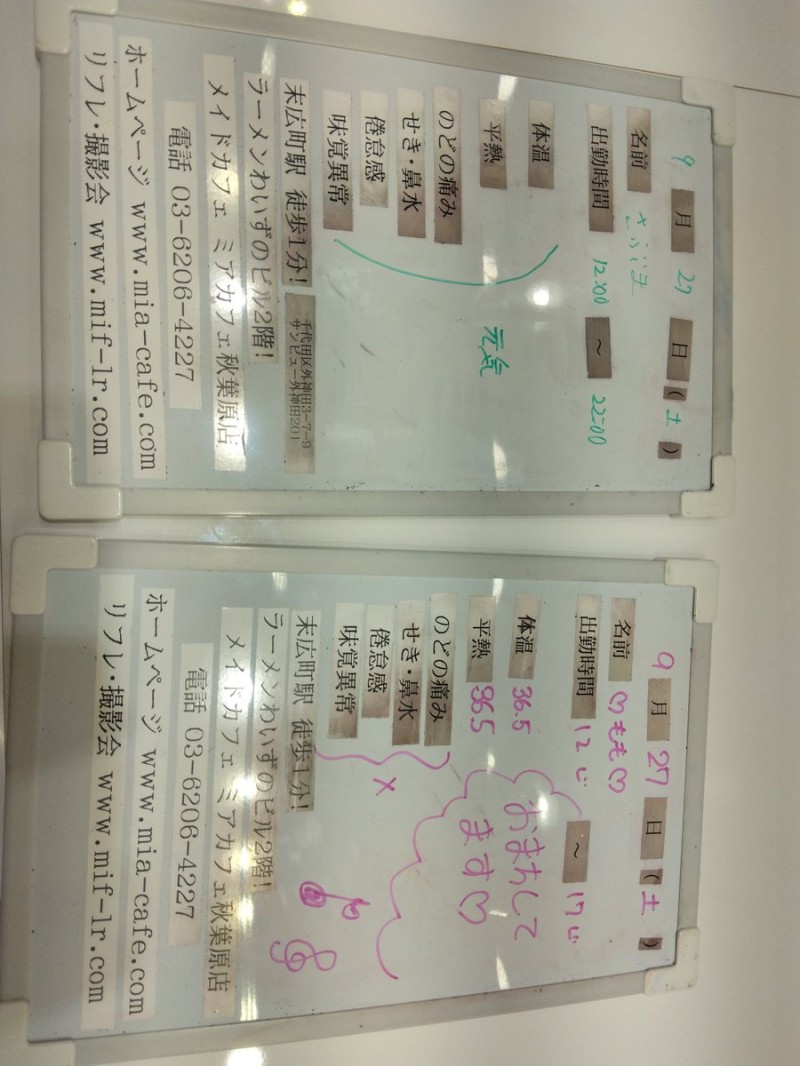 9 月 27 日 (土)
名前 さぶま
出勤時間 12:00 ～ 22:00
体温
平熱
のどの痛み
せき・鼻水
倦怠感
味覚異常
元気
末広町駅 徒歩1分!
千代田区外神田3-7-9
サンビュー外神田201
ラーメンわいずのビル2階!
メイドカフェ ミアカフェ秋葉原店
電話 03-6206-4227
ホームページ www.mia-cafe.com
リフレ・撮影会 www.mif-lr.com
9 月 27 日 (土)
名前 ♡もも♡
出勤時間 12じ ～ 17じ
体温 36.5
平熱 36.5
のどの痛み
せき・鼻水
倦怠感
味覚異常
×
おまちして
ます♡
末広町駅 徒歩1分!
ラーメンわいずのビル2階!
メイドカフェ ミアカフェ秋葉原店
電話 03-6206-4227
ホームページ www.mia-cafe.com
リフレ・撮影会 www.mif-lr.com